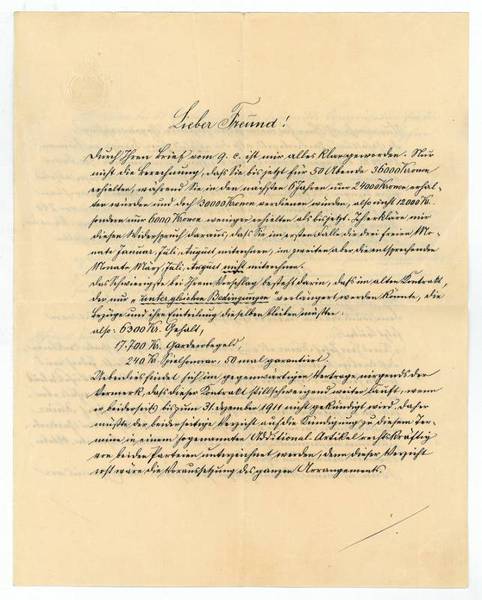 Lieber Freund!
Durch Ihren Brief vom 9. c. ist mir alles klargeworden. Nur
nicht die Berechnung, dass Sie bis jetzt für 50 Abende 36000 Krone
erhielten, während Sie in den nächsten 6 Jahren nur 24000 Krone erhal-
ten würden und doch 30000 Krone verdienen würden, also nicht 12000 Kr.
sondern nur 6000 Krone weniger erhielten als bis jetzt. Ich erkläre mir
diesen Widerspruch daraus, dass Sie im ersten Falle die drei freien Mo-
nate Januar, Juli, August mitrechnen, im zweiten aber die entsprechenden
Monate März, Juli, August nicht mitrechnen.
Das Schwierigste bei Ihrem Vorschlag besteht darin, dass im alten Contrakt,
der nur "unter gleichen Bedingungen" verlängert werden könnte, die
Bezüge und ihre Einteilung dieselben bleiben müssten.
also: 6300 Kr. Gehalt,
17.700 Kr. Garderobegeld,
240 Kr. Spielhonorar, 50 mal garantiert.
Ueberdies findet sich im gegenwärtigen Vertrage nirgends der
Vermerk, dass dieser Contrakt stillschweigend weiter läuft, wenn
er beiderseits bis zum 31. Dezember 1911 nicht gekündigt wird. Daher
müsste der beiderseitige Verzicht auf die Kündigung zu diesem Ter-
min in einem sogenannten Additional-Artikel rechtskräftig
von beiden Parteien unterzeichnet werden, denn dieser Verzicht
erst wäre die Voraussetzung des ganzen Arrangements.